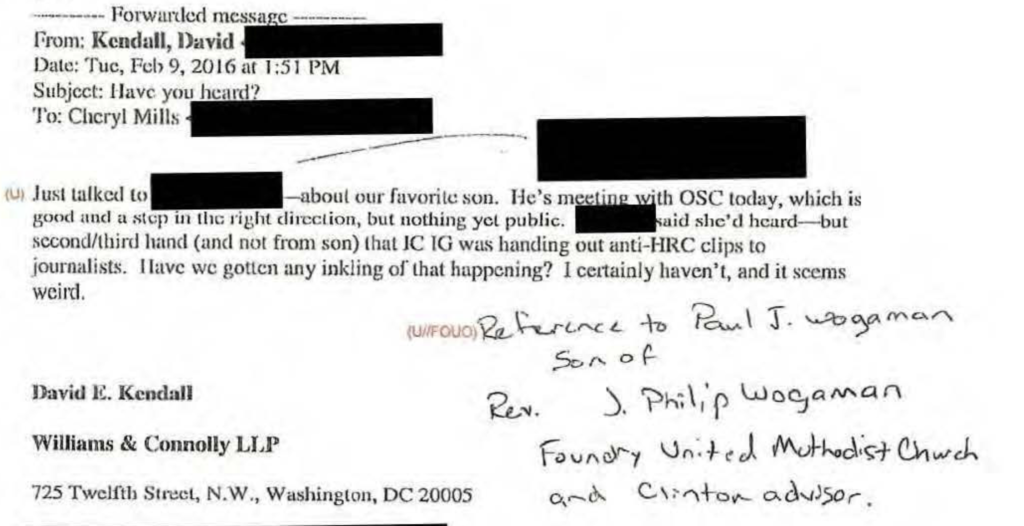 ---------- Forwarded message ----------
From: Kendall, David <
Date: Tue, Feb 9, 2016 at 1:51 PM
Subject: Have you heard?
To: Cheryl Mills <
(U) Just talked to —about our favorite son. He's meeting with OSC today, which is
good and a step in the right direction, but nothing yet public. said she'd heard—but
second/third hand (and not from son) that IC IG was handing out anti-HRC clips to
journalists. Have we gotten any inkling of that happening? I certainly haven't, and it seems
weird.
(U//FOUO) Reference to Paul J. Wogaman
Son of
Rev. J. Philip Wogaman
Foundry United Methodist Church
and Clinton advisor.
David E. Kendall
Williams & Connolly LLP
725 Twelfth Street, N.W., Washington, DC 20005